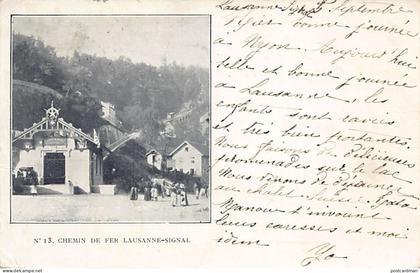 Lausanne Signal 5 Septembre
Hier bonne journée
à Nyon. Aujourd'hui
belle et bonne journée
à Lausanne, les
enfants sont ravis
et très bien portants.
Nous faisons de délicieuses
promenades sur le lac
Nous venons de déjeuner
au chalet Suisse.
Manou
leurs caresses et moi
idem
Yo
N° 13. CHEMIN DE FER LAUSANNE-SIGNAL
postcardman